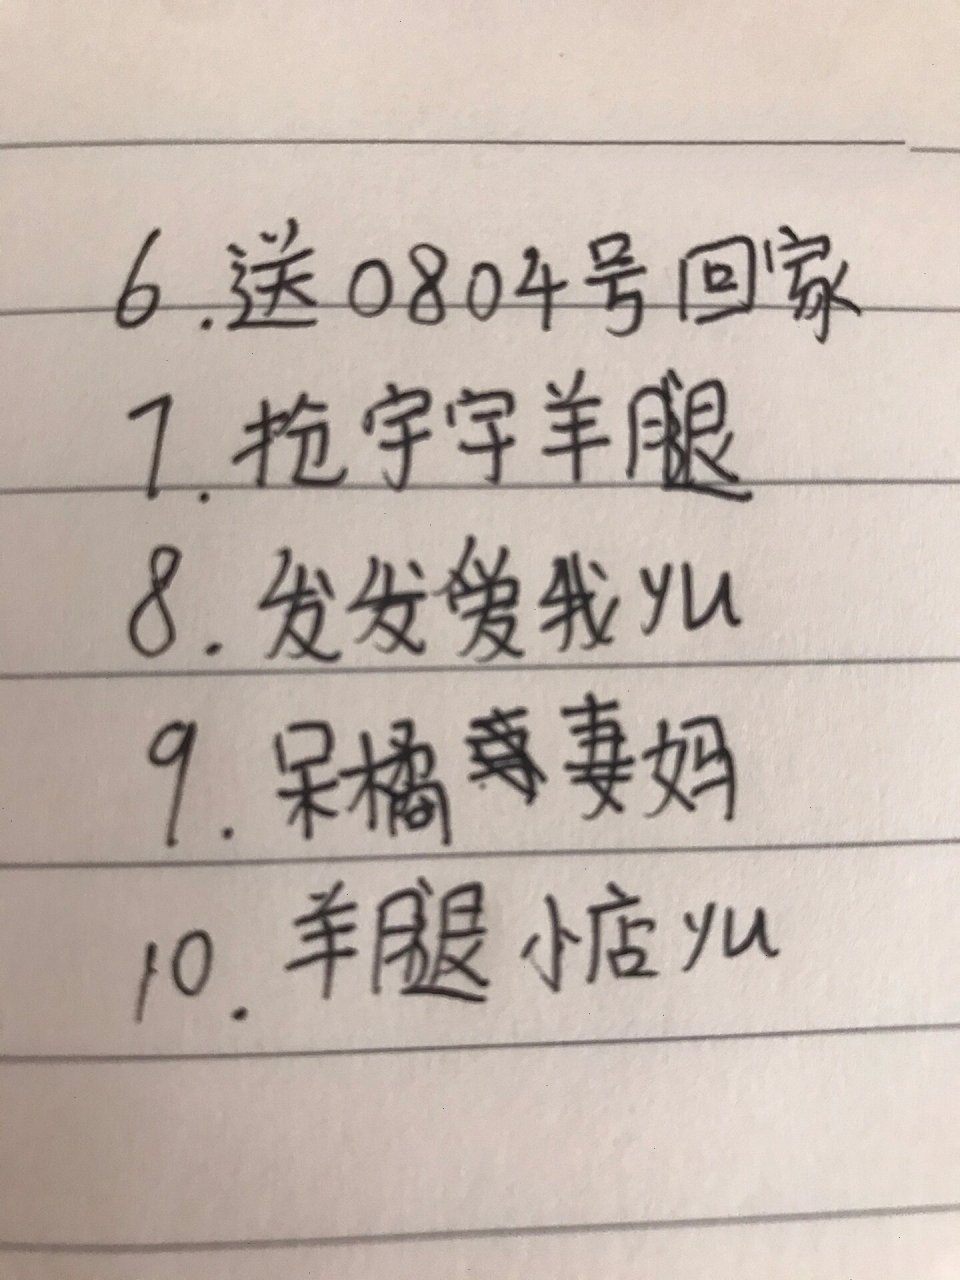 6.送0804号回家
7.抢宇宇羊腿
8.发发爱我yu
9.呆橘妻妈
10.羊腿小店yu